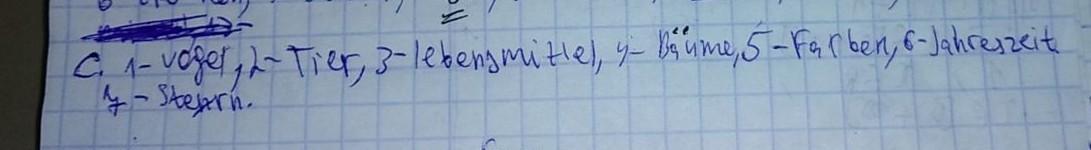 C. 1-Vogel, 2-Tier, 3-lebensmittel, 4-Bäume, 5-Farben, 6-Jahreszeit
7-Stern.